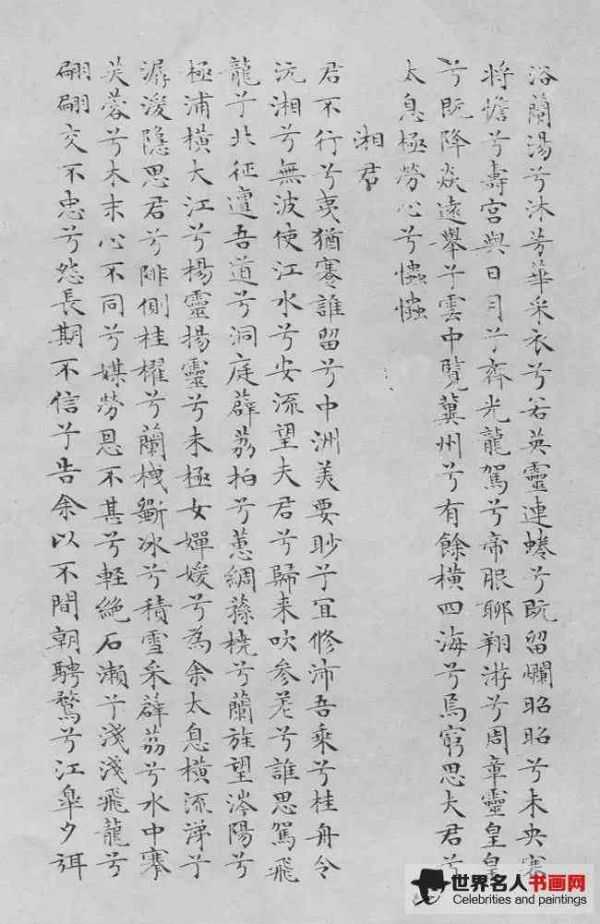 浴蘭湯兮沐芳華采衣兮若英靈連蜷兮既留爛昭昭兮未央蹇
將憺兮壽宮與日月兮齊光龍駕兮帝服聊翔游兮周章靈皇皇
兮既降焱遠舉兮雲中覽冀州兮有餘橫四海兮焉窮思夫君兮
太息極勞心兮忡忡
湘君
君不行兮夷猶蹇誰留兮中洲美要眇兮宜修沛吾乘兮桂舟令
沅湘兮無波使江水兮安流望夫君兮歸来吹參差兮誰思駕飛
龍兮北征邅吾道兮洞庭薜荔拍兮蕙綢蓀橈兮蘭旌望涔陽兮
極浦橫大江兮揚靈揚靈兮未極女嬋媛兮為余太息橫流涕兮
潺湲隱思君兮陫側桂櫂兮蘭枻斲冰兮積雪采薜荔兮水中搴
芙蓉兮木末心不同兮媒勞恩不甚兮輕絕石瀨兮淺淺飛龍兮
翩翩交不忠兮怨長期不信兮告余以不閒朝騁騖兮江皋夕弭
世界名人书画网
Celebrities and paintings